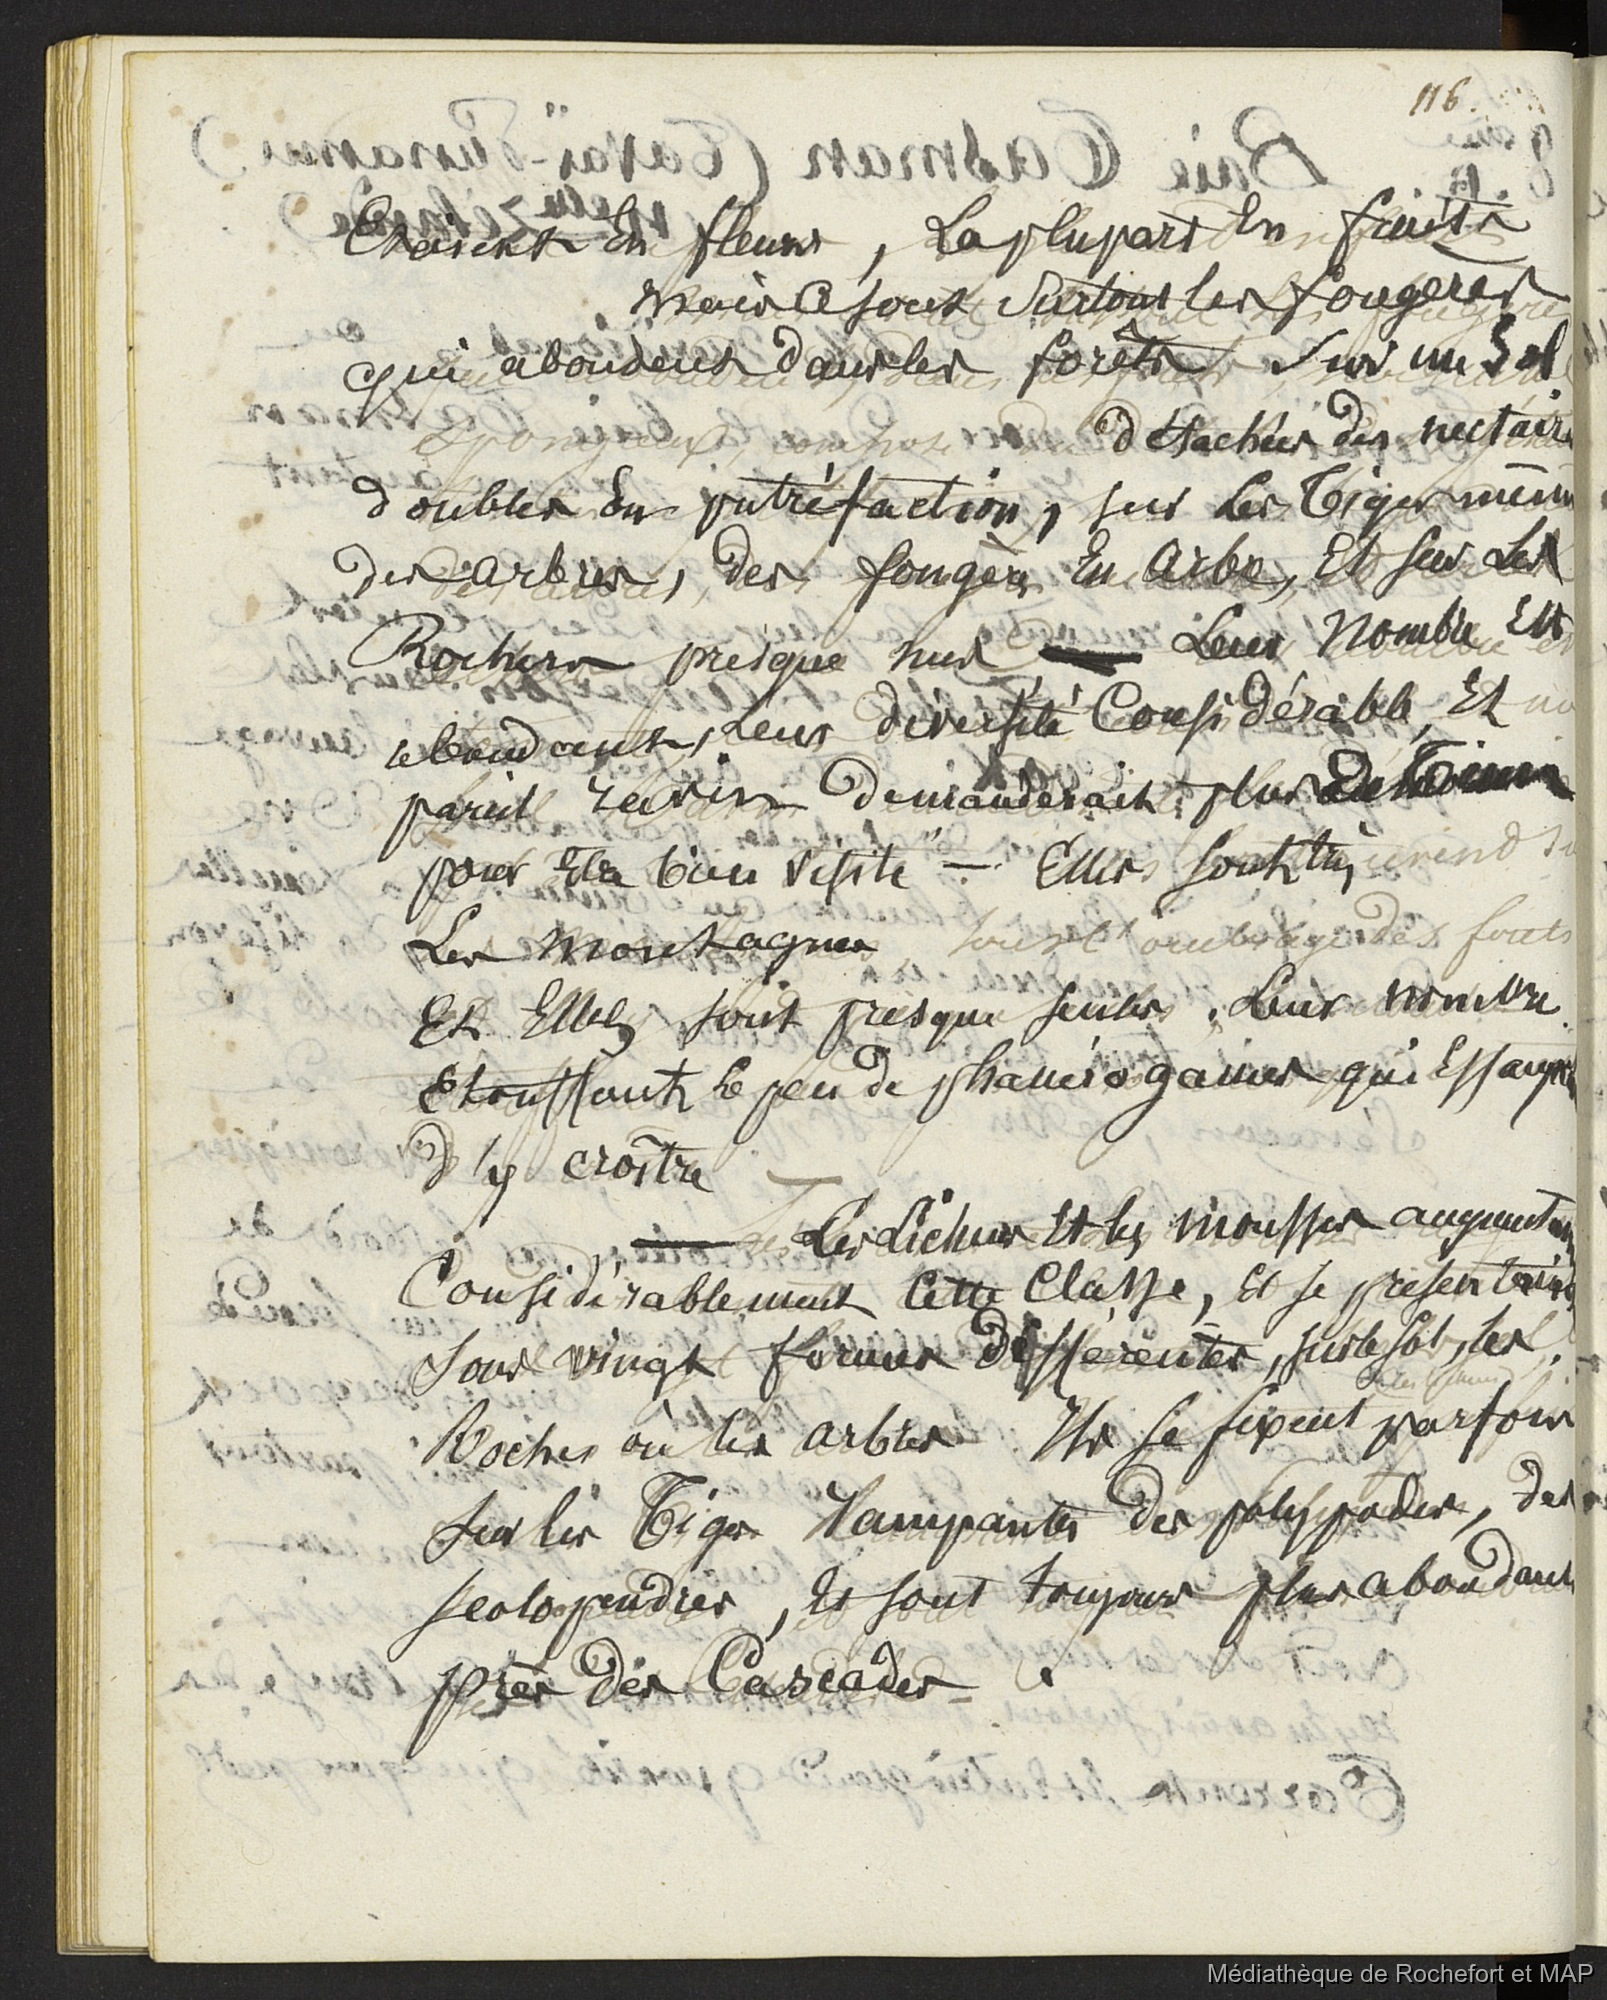 116.
Etaient En fleurs, La plupart En fruits
mais ce sont Surtout les fougeres
qui abondent dans les forêts Sur un Sol
spongieux, composé détachées des nectaire
doubles En putréfaction, sur les Tiges même
des arbres, des fougères En arbre, Et sur Les
Rochers presque nus Leur Nombre Est
abondant, Leur diversité Considérable, Et
pareil ravin demanderait plus de
pour Etre bien visité — Elles sont très
Les Montagnes sous l'ombrage des forets
Et Elles sont presque seules. Leur nombre
Etouffant le peu de phanérogames qui Essayent
d'y croître
Les Lichens Et les mousses augmentent
Considérablement Cette Classe, Et se présentaient
Sous vingt formes différentes, sur le Sol, les
Roches où les arbres Ils se fixent parfois
sur les Tiges Rampantes des polypodes, des
scolopendres, Et sont toujours plus abondants
près des Cascades
Médiathèque de Rochefort et MAP